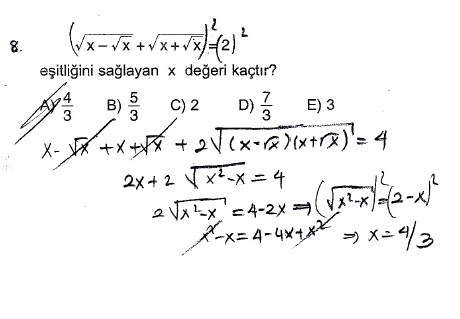 8. (√(x-√x) + √(x+√x))² = (2)²
eşitliğini sağlayan x değeri kaçtır?
A) 4/3 B) 5/3 C) 2 D) 7/3 E) 3
x - √x + x + √x + 2√((x-√x)(x+√x)) = 4
2x + 2 √(x²-x) = 4
2√(x²-x) = 4-2x ⇒ (√(x²-x))² = (2-x)²
x²-x = 4-4x+x² ⇒ x = 4/3